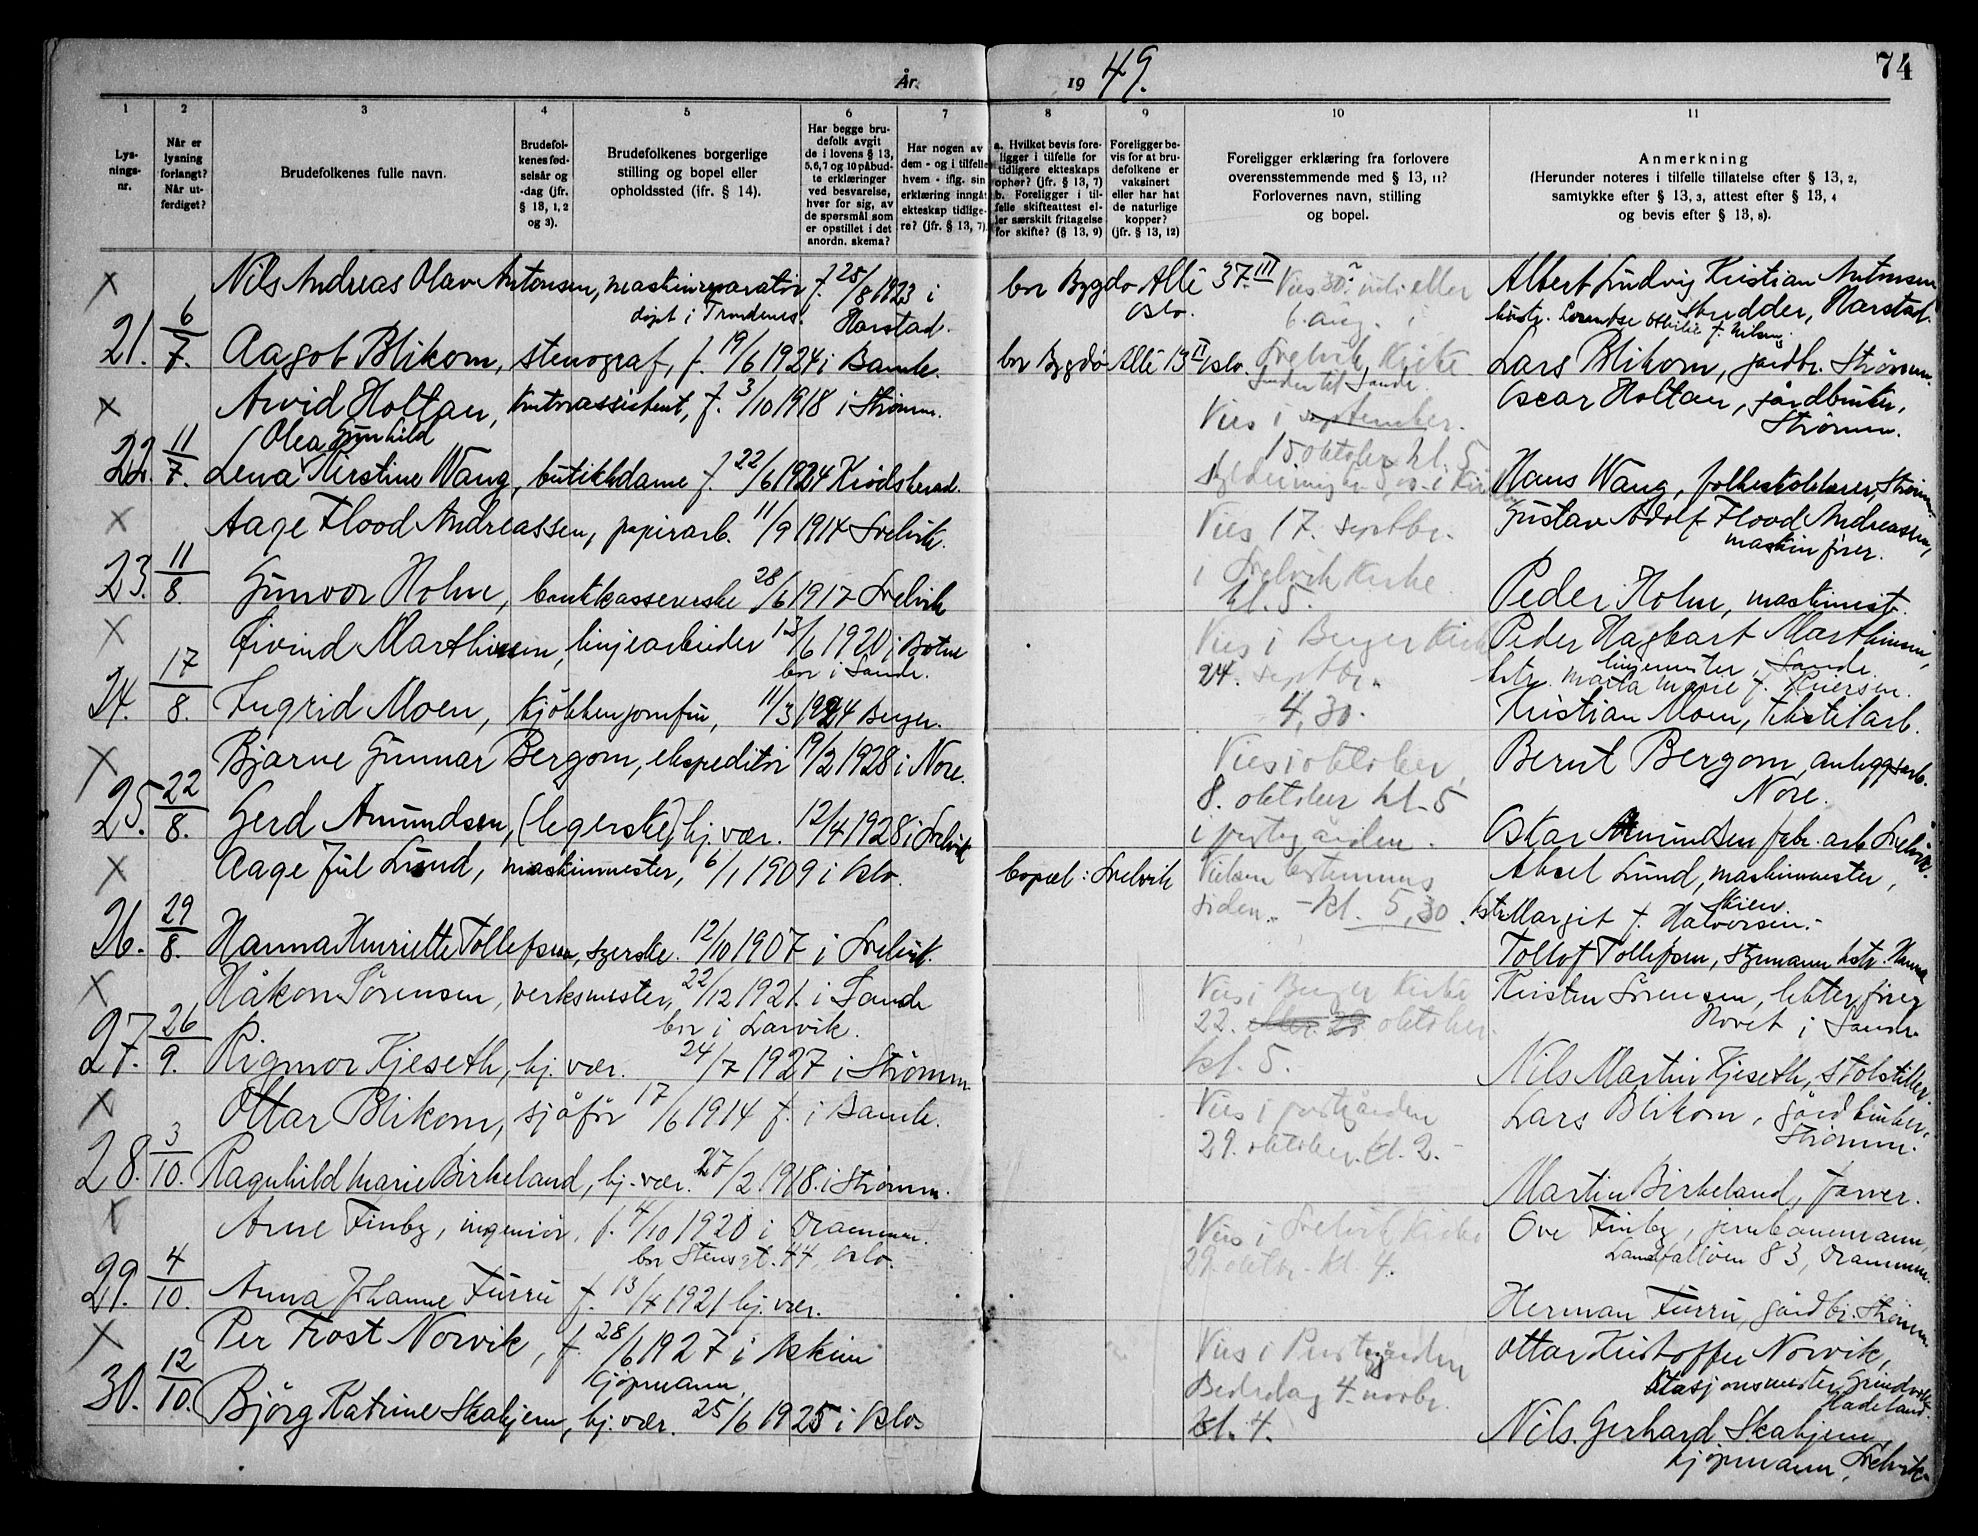 74
År 19 49.
1 2 3 4 5 6 7 8 9 10 11
Lys-
nings-
nr.
Når er
lysning
forlangt?
Når ut-
ferdiget?
Brudefolkenes fulle navn.
Brudefol-
kenes fød-
selsår og
-dag (jfr.
§ 13, 1, 2
og 3).
Brudefolkenes borgerlige
stilling og bopel eller
opholdssted (ifr. § 14).
Har begge bru-
defolk avgit
de i lovens § 13,
5, 6, 7 og 10 påbud-
te erklæringer
ved besvarelse,
hver for sig, av
de spørsmål som
er opstillet i det
anordn. skema?
Har nogen av
dem - og i tilfelle
hvem - iflg. sin
erklæring inngåt
ekteskap tidlige-
re? (jfr. § 13, 7).
a. Hvilket bevis fore-
ligger i tilfelle for
tidligere ekteskaps
ophør? (jfr. § 13, 7)
b. Foreligger i til-
felle skifteattest el-
ler særskilt fritagelse
for skifte? (§ 13, 9)
Foreligger be-
vis for at bru-
defolkene er
vaksinert
eller har hat
de naturlige
kopper?
(jfr. § 13, 12)
Foreligger erklæring fra forlovere
overensstemmende med § 13, 11?
Forlovernes navn, stilling
og bopel.
Anmerkning
(Herunder noteres i tilfelle tillatelse efter § 13, 2,
samtykke efter § 13, 3, attest efter § 13, 4
og bevis efter § 13, 8).
x Nils Andreas Olav Antonsen, maskinreparatör f. 25/8 1923 i bor Bygdö Allé 37 III Vies 30. juli eller Albert Ludvig Kristian Antonsen
döpt i Trondenes. Harstad. Oslo. 6. aug. skredder, Harstad.
21. 6/7. Aagot Blikom, stenograf, f. 19/6 1924 i Bamle. bor Bygdö Allé 13 II Oslo. Svelvik Kirke Lars Blikom, gårdbr. Strömm.
x Arvid Holtan, kontorassistent, f. 3/10 1918 i Strömm. Vies i september. Oscar Holtan, gårdbruker,
Strömm.
(Olea Gunhild 15 oktober kl. 5
22. 11/7. Lena Kirstine Wang, butikkdame f. 22/6 1924 Krödsherad. Hans Wang, folkeskolelærer, Strömm.
x Aage Flood Andreassen, papirarb. 11/9 1914 Svelvik. Vies 17. septbr. Gustav Adolf Flood Andreassen,
maskinfører.
23. 11/8. Gunvor Holm, bankkassererske 28/6 1917 Svelvik i Svelvik Kirke Peder Holm, maskinist.
kl. 5.
x Öivind Marthinsen, linjearbeider 13/6 1920 i Botne Vies i Berger Kirke Peder Hagbart Marthinsen,
bor i Sande. 24. septbr. linjemester, Sande.
hstr. Marta Marie f. Iversen.
24. 17/8. Ingrid Moen, kjökkenjomfru, 11/3 1924 Berger. 4,30. Kristian Moen, tekstilarb.
x Bjarne Gunnar Bergom, ekspeditör 19/2 1928 i Nore. Vies i oktober, Bernt Bergom, anleggsarb.
Nore.
25. 22/8. Gerd Amundsen, (legerske) hj. vær. 12/4 1928 i Svelvik 8. oktober kl. 5 Oskar Amundsen fabr. arb. Svelvik.
i prestegården.
x Aage Jul Lund, maskinmester, 6/1 1909 i Oslo. bopæl: Svelvik Vielsen bestemmes Aksel Lund, maskinmester,
Skien
siden. - kl. 5,30. hstr. Margit f. Halvorsen.
26. 29/8. Hanna Henriette Tollefsen, syerske. 12/10 1907 i Svelvik. Tollof Tollefsen, styrmann hstr. Hanna
x Håkon Sörensen, verksmester, 22/12 1921. i Sande Vies i Berger Kirke Kristen Sörensen, lekterfører
bor i Larvik. 22. eller 29. oktober. Hovet i Sande.
27. 26/9. Rigmor Kjeseth, hj. vær. 24/7 1927 i Strömm kl. 5. Nils Martin Kjeseth, stolstiller.
x Ottar Blikom, sjåför 17/6 1914 f. i Bamle. Vies i prestgården Lars Blikom, gårdbruker,
29. oktober. kl. 2.- Strömm.
28. 3/10. Ragnhild Marie Birkeland, hj. vær. 27/2 1918. i Strömm. Martin Birkeland, farver.
x Arne Finby, ingeniör, f. 4/10 1920 i Drammen. Vies i Svelvik Kirke Ove Finby, jernbanemann,
bor Stensgt. 44, Oslo. 29. oktbr. kl. 4. Landfalløen 83, Drammen.
29. 4/10. Anna Johanne Furru f. 13/4 1921 hj. vær. Herman Furru, gårdbr. Strömm.
x Per Frost Norvik, f. 28/6 1927 i Askim Vies i Prestegården Ottar Kristoffer Norvik,
kjöpmann. Bededag 4. novbr. stasjonsmester, Grindvoll,
Hadeland.
30. 12/10. Björg Katrine Skahjem, hj. vær. 25/6 1925 i Oslo kl. 4. Nils Gerhard Skahjem,
kjöpmann, Svelvik.